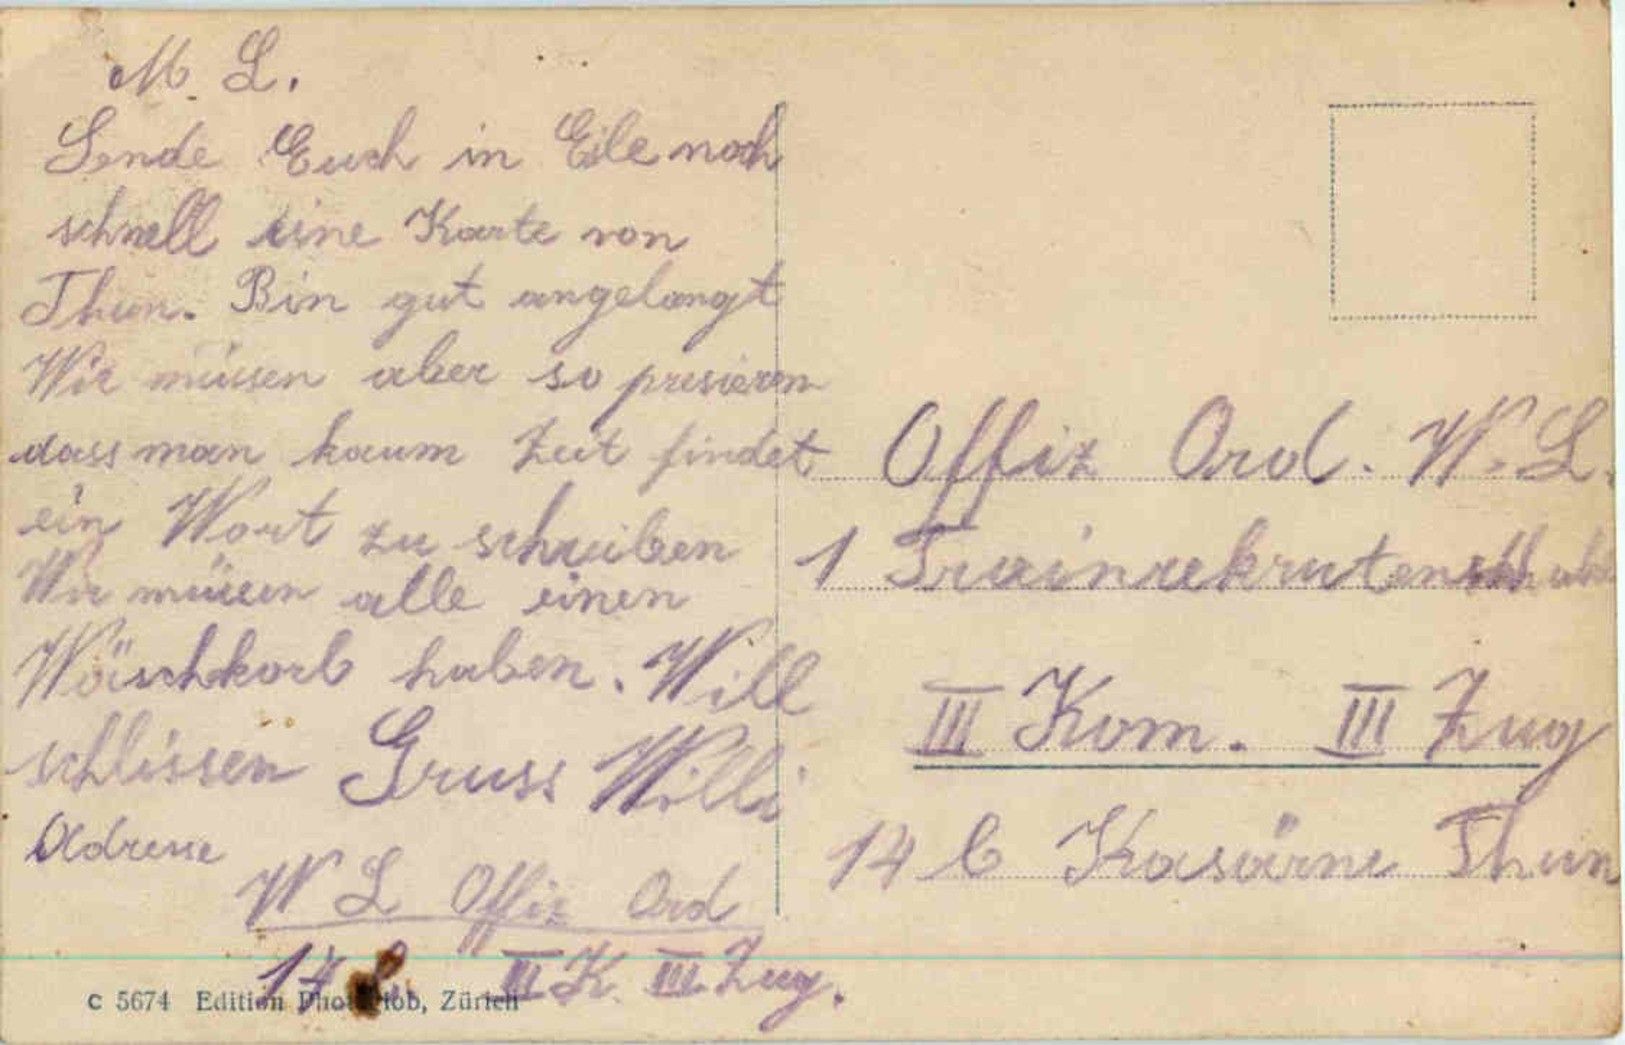 M. L.
Sende Euch in Eile noch
schnell eine Karte von
Thun. Bin gut angelangt
Wir müssen aber so presieren
dass man kaum Zeit findet
ein Wort zu schreiben
Wir müssen alle einen
Wäschkorb haben. Will
schlissen Gruss Willi
Adresse
W L Offiz Ord
III K. III. Zug.
C 5674 Edition Photoglob, Zürich
Offiz Ord. W. L.
1 Trainrekrutenschule
III Kom. III Zug
14 b Kasärne Thun